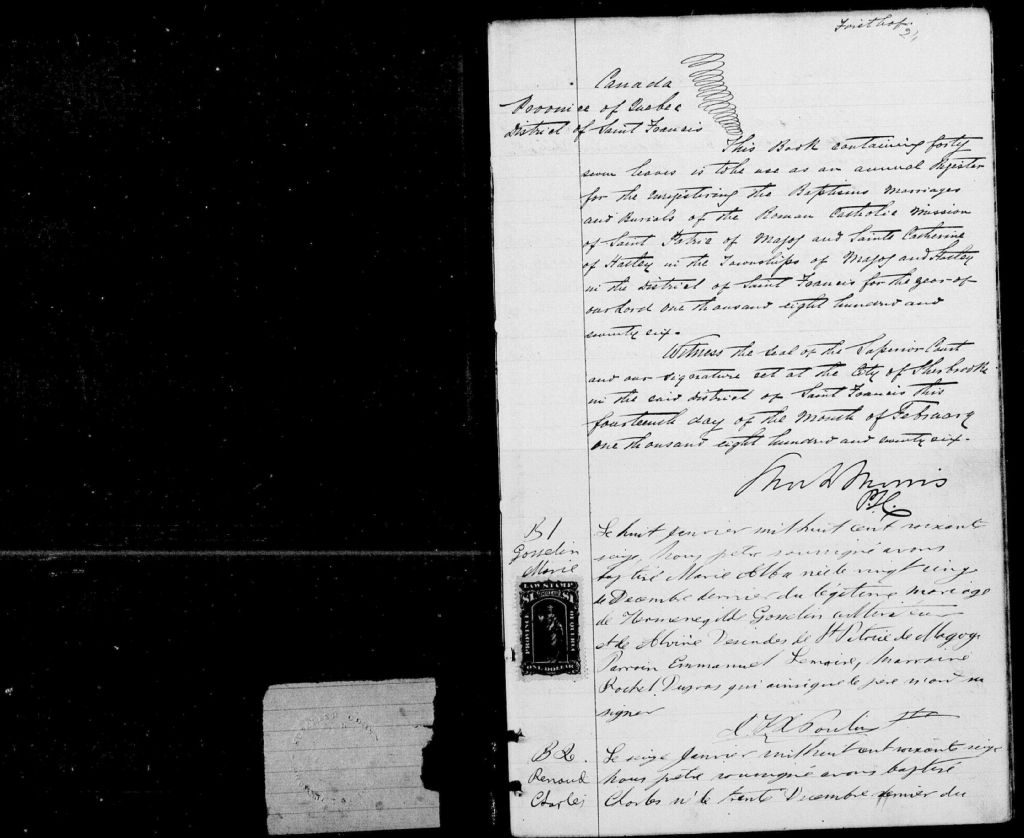 Canada
Province of Quebec
District of Saint Francis
This Book containing forty
seven leaves is to be use as an annual Register
for the enregistering the Baptisms Marriages
and Burials of the Roman Catholic Mission
of Saint Patrice of Magog and Sainte Catherine
of Hatley in the Townships of Magog and Hatley
in the District of Saint Francis for the year of
our Lord one thousand eight hundred and
seventy six.
Witness the Seal of the Superior Court
and our signature set at the City of Sherbrooke
in the said district of Saint Francis this
fourteenth day of the Month of February
one thousand eight hundred and seventy six.
Morris
B 1
Gosselin
Marie
LAW STAMP
$1 $1
PROVINCE OF QUEBEC
ONE DOLLAR
Le huit Janvier mil huit cent soixante
seize, Nous prêtre soussigné avons
baptisé Marie Alba née le vingt cinq
de Decembre dernier du légitime mariage
de Hormenegild Gosselin cultivateur
et de Alvine de St Patrice de Magog.
Parrain Emmanuel marraine
Rachel qui ainsi que le père n'ont su
signer
B 2.
Renaud
Charles
Le seize Janvier mil huit cent soixante seize
Nous prêtre soussigné avons baptisé
Charles né le trente Decembre dernier du